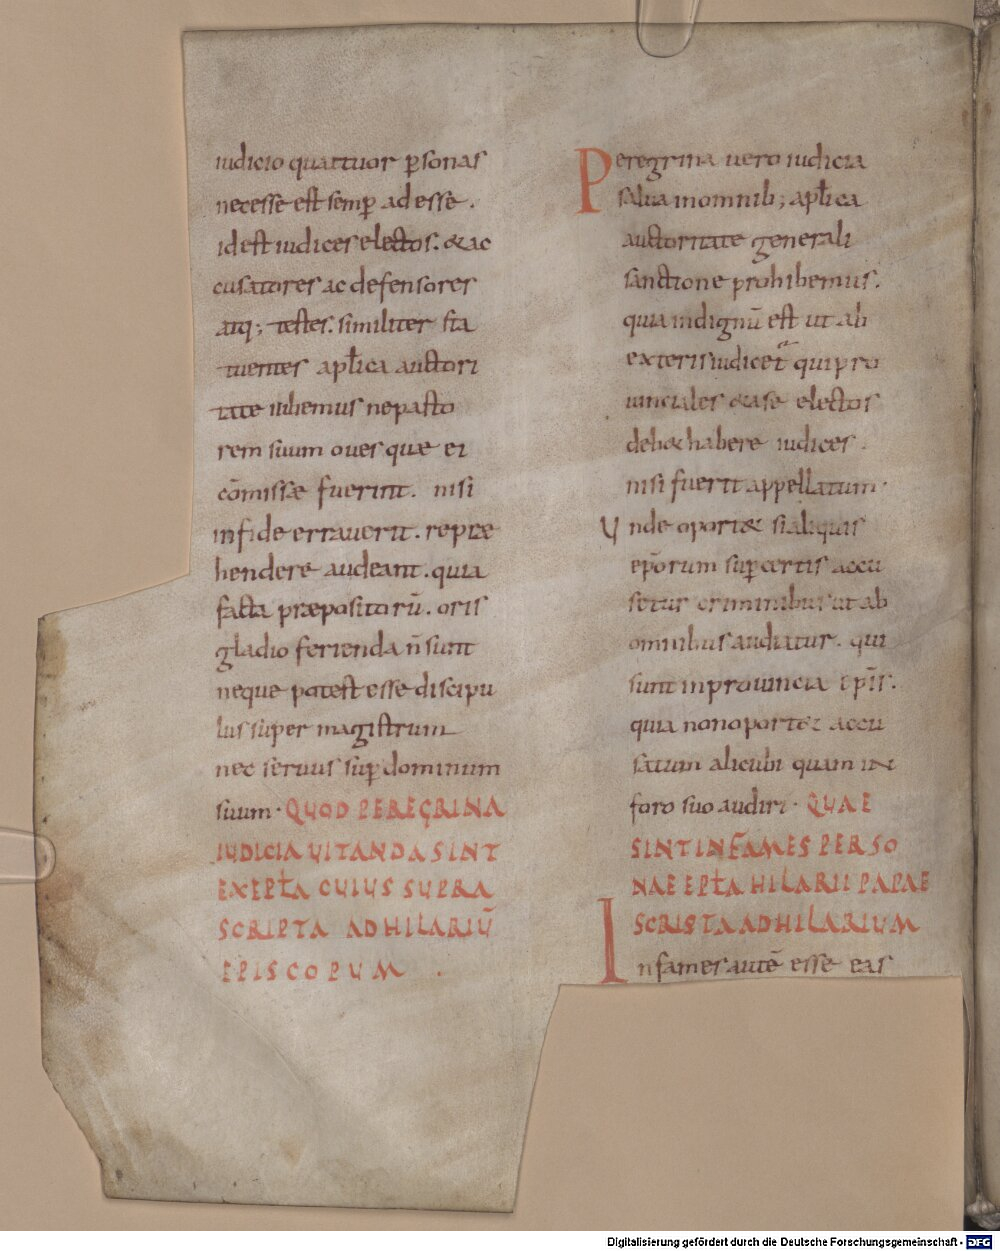 iudicio quattuor ꝑsonas
necesse est semꝑ ad esse.
id est iudices electos. & ac
cusatores ac defensores
atq; testes. similiter sta
tuentes aplica auctori
tate iubemus ne pasto
rem suum oues quæ ei
cōmissæ fuerint. nisi
in fide erraverit. repræ
hendere audeant. quia
facta præpositorū. oris
gladio ferienda ñ sunt
neque potest esse discipu
lus super magistrum
nec seruus suꝑ dominum
suum. QUOD PEREGRINA
IUDICIA VITANDA SINT
EX EPƚA CUIUS SUPRA
SCRIPTA AD HILARIŪ
EPISCOPUM.
Peregrina uero iudicia
salua in omnib; aplica
auctoritate generali
sanctione prohibemus.
quia indignū est ut ab
exteris iudicet̄ qui pro
uinciales & a se electos
deb& habere iudices.
nisi fuerit appellatum.
Unde oport& si aliquis
ep̄orum suꝑ certis accu
setur criminibus ut ab
omnibus audiatur. qui
sunt in prouincia ep̄is.
quia non oportet accu
satum alicubi quam in
foro suo audiri. QUAE
SINT INFAMES PERSO
NAE EPƚA HILARII PAPAE
SCRISTA AD HILARIUM
Infames autē esse eas
Digitalisierung gefördert durch die Deutsche Forschungsgemeinschaft - DFG